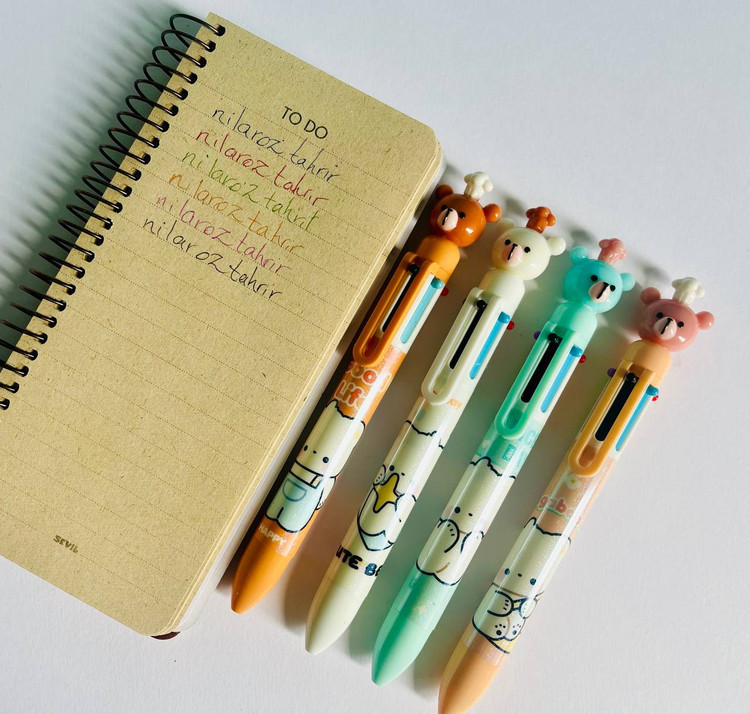 TO DO
nilaroz tahrir
nilaroz tahrir
nilaroz tahrir
nilaroz tahrir
nilaroz tahrir
nilaroz tahrir
SEVIL
HAPPY